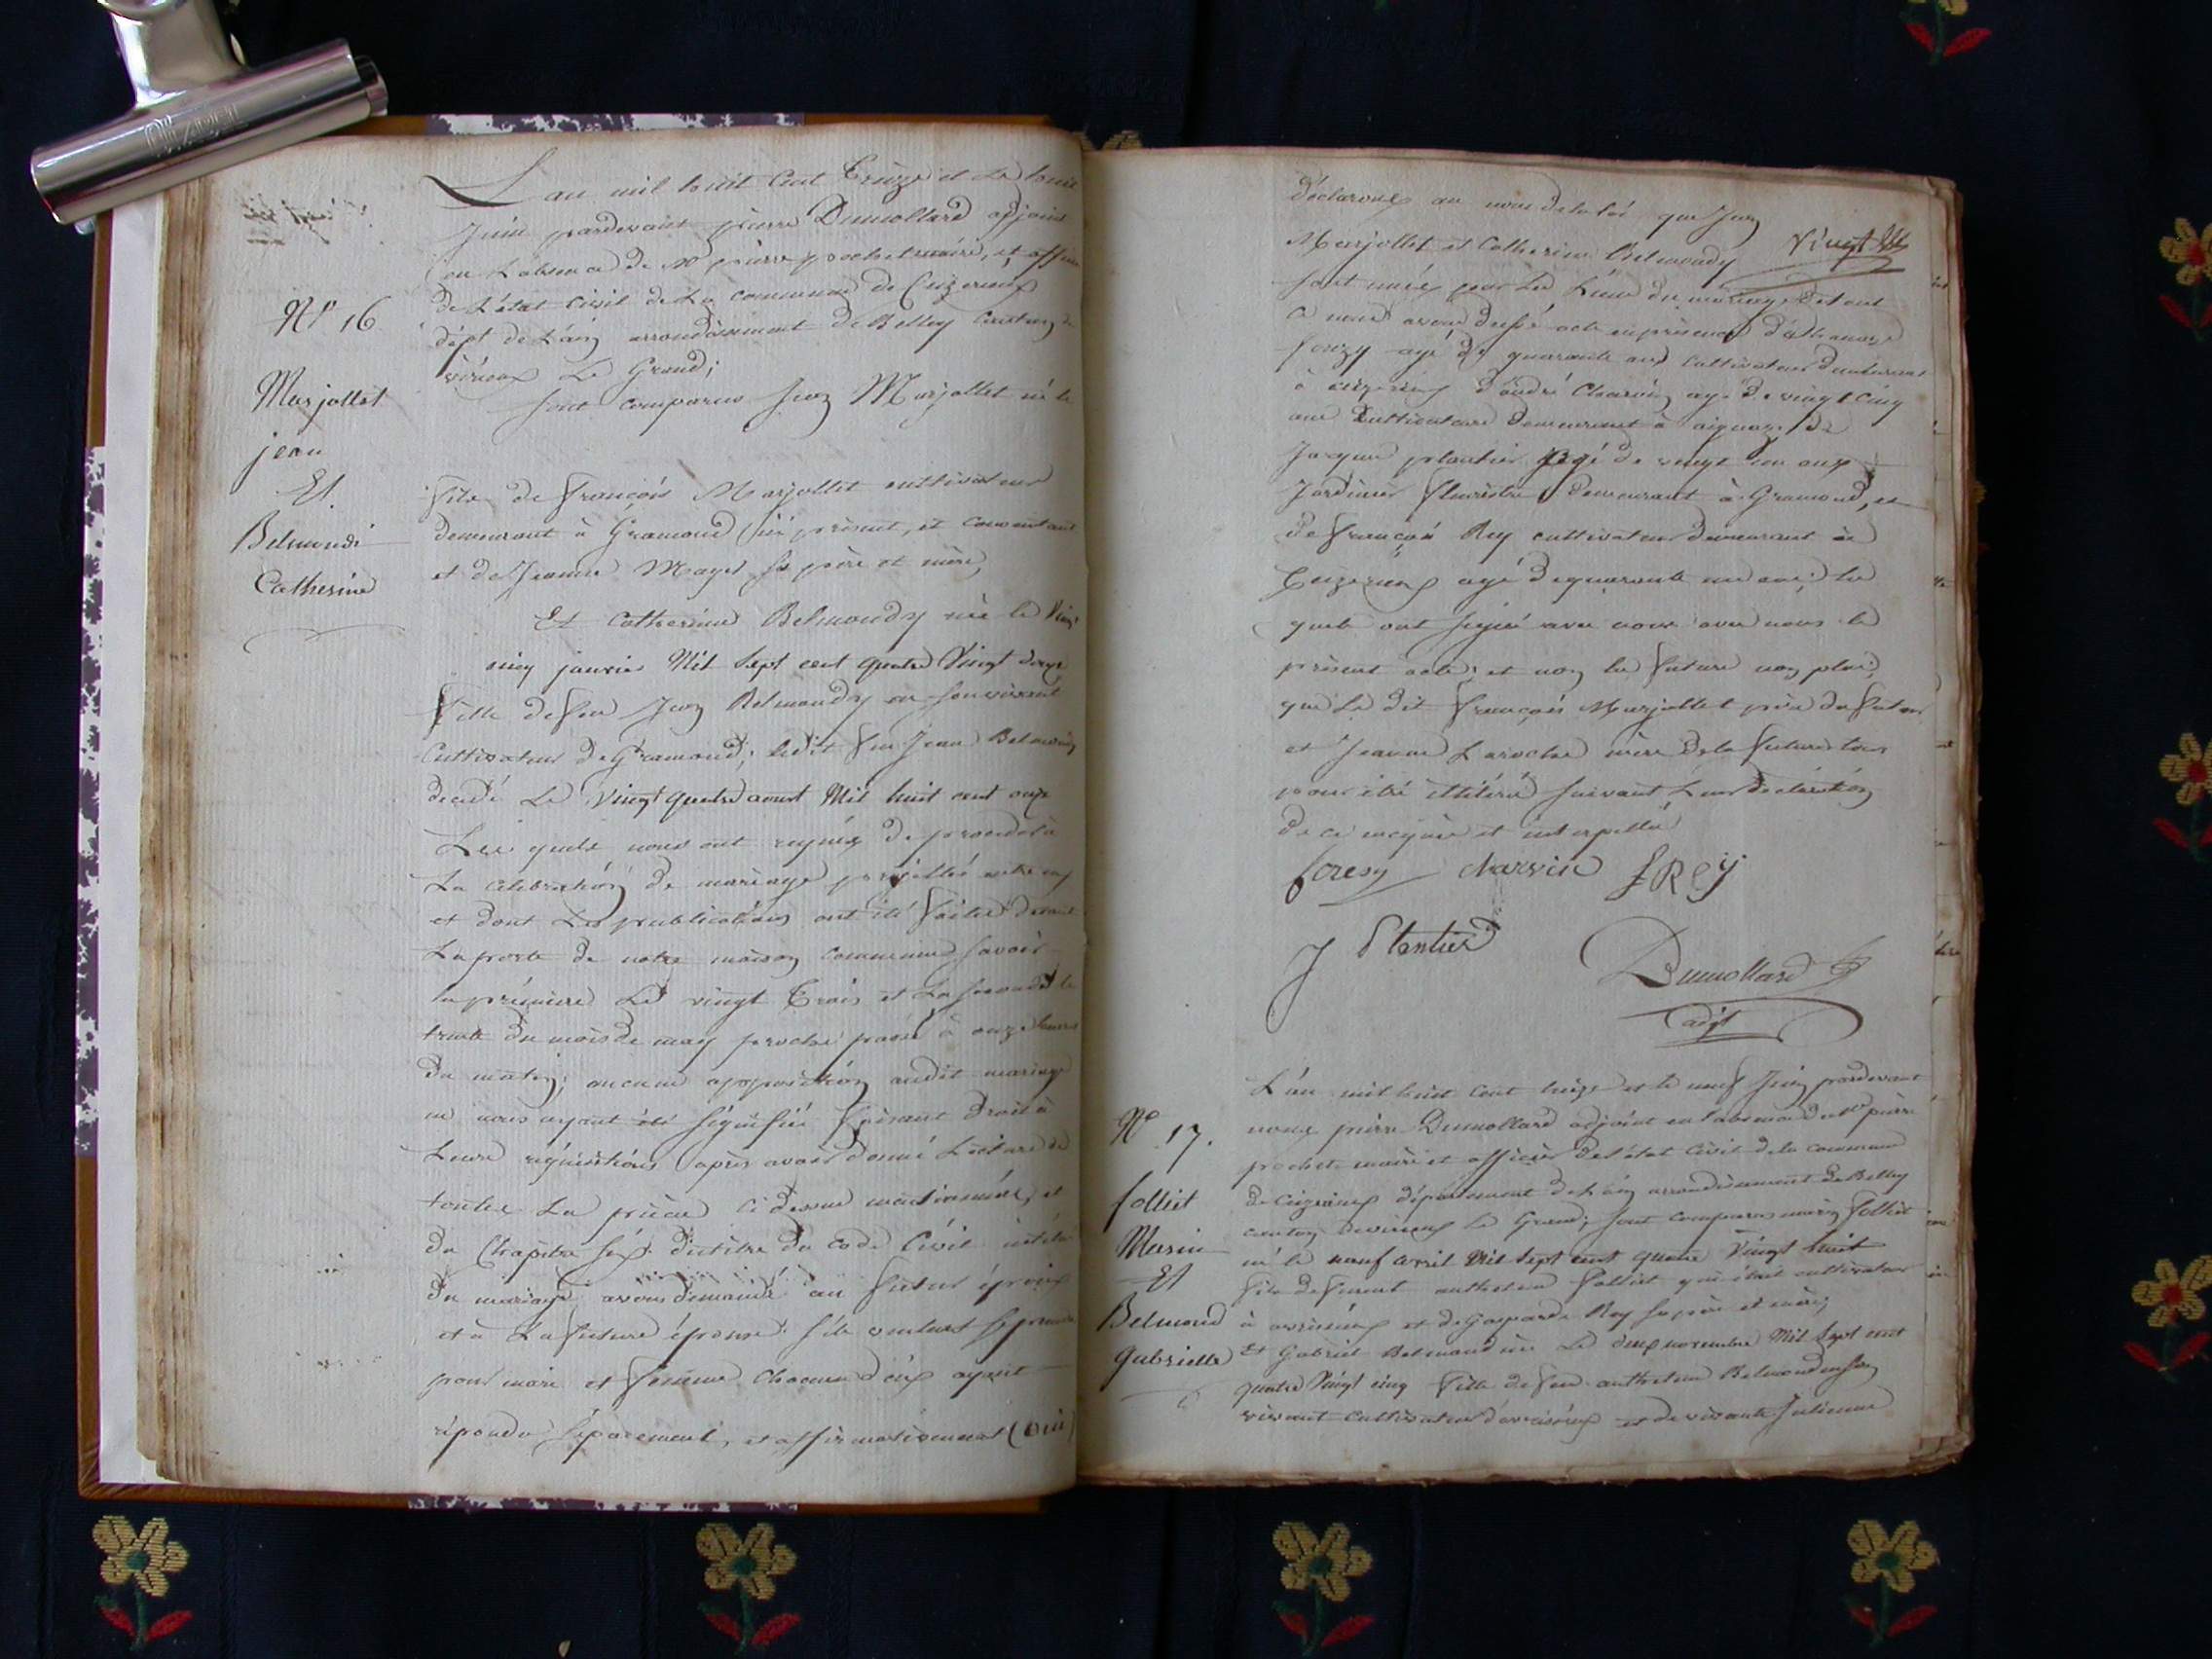 L'an mil huit Cent Treize et Le huit
Juin pardevant pierre Dumollard adjoint
en L'absence de Mr pierre pochet maire, et officier
de L'état Civil de La commune de Ceizerieux
dépt de L'ain arrondissement de Belley Canton de
virieux Le Grand;
Sont comparus Jean Marjollet né le
N° 16
Marjollet
jean
Et
Belmondi
Catherine
fils de françois Marjollet cultivateur
demeurant à Gramond ici présent, et consentant
et de Jeanne Mayet ses père et mère,
Et Catherine Belmondy née le Vingt
cinq janvier Mil Sept cent quatre Vingt douze
fille de feu Jean Belmondy en son vivant
Cultivateur de Gramond; ledit feu Jean Belmondy
décédé Le Vingt quatre aoust Mil huit cent onze
Les quels nous ont requis de procéder à
La célébration de mariage projetté entre eux
et dont Les publications ont été faites devant
La porte de notre maison Commune Savoir
la première Le vingt Trois et La seconde le
trente du mois de may proche passé à onze heures
du matin; aucune opposition audit mariage
ne nous ayant été signifiée faisant droit à
Leurs réquisitions après avoir donné Lecture de
toutes Les pièces ci dessus mentionnées, et
du Chapitre six du titre du code Civil intitulé
du mariage avons demandé au futur époux
et à La future épouse s'ils veulent se prendre
pour mari et femme chacun d'eux ayant
répondu séparement, et affirmativement (oui)
déclarons au nom de la loi que Jean
Vingt
Marjollet et Catherine Belmondy
sont unis par Le Lien du mariage de tout
ce nous avons dressé acte en présence d'
agé de quarante ans cultivateur demeurant
à ceizerieux d'andré Charvin agé de vingt cinq
ans Cultivateur demeurant à aignoz, de
Jacques plantier agé de vingt un ans
Jardinier fleuriste demeurant à Gramond, et
de françois Rey cultivateur demeurant à
Ceizerieux agé de quarante un ans; les
quels ont signé avec nous avec nous le
présent acte; et non les futurs non plus
que Le dit françois Marjollet père du futur
et Jeanne Laroche mère de la future tous
pour être illitéré suivant Leur déclaration
de ce enquis et interpellé
Charvin f Rey
J Plantier
Dumollard
adjt
L'an mil huit cent treize et le neuf Juin pardevant
nous pierre Dumollard adjoint en l'absence de Mr pierre
pochet maire et officier de l'état Civil de la commune
de Ceizerieux département de L'ain arrondissement de Belley
canton de virieux Le Grand; sont comparus marin folliet
né le neuf avril Mil Sept cent quatre Vingt huit
N° 17.
folliet
Marin
Et
Belmond
Gabrielle
fils de furent anthelme folliet qui était cultivateur
à avrissieux et de Gasparde Rey ses père et mère;
Et Gabriel Belmond née Le deux novembre Mil Sept cent
quatre Vingt cinq fille de feu anthelme Belmond en son
vivant Cultivateur d'avrissieux et de vivante Julienne